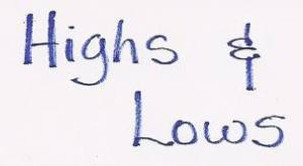 Highs &
Lows